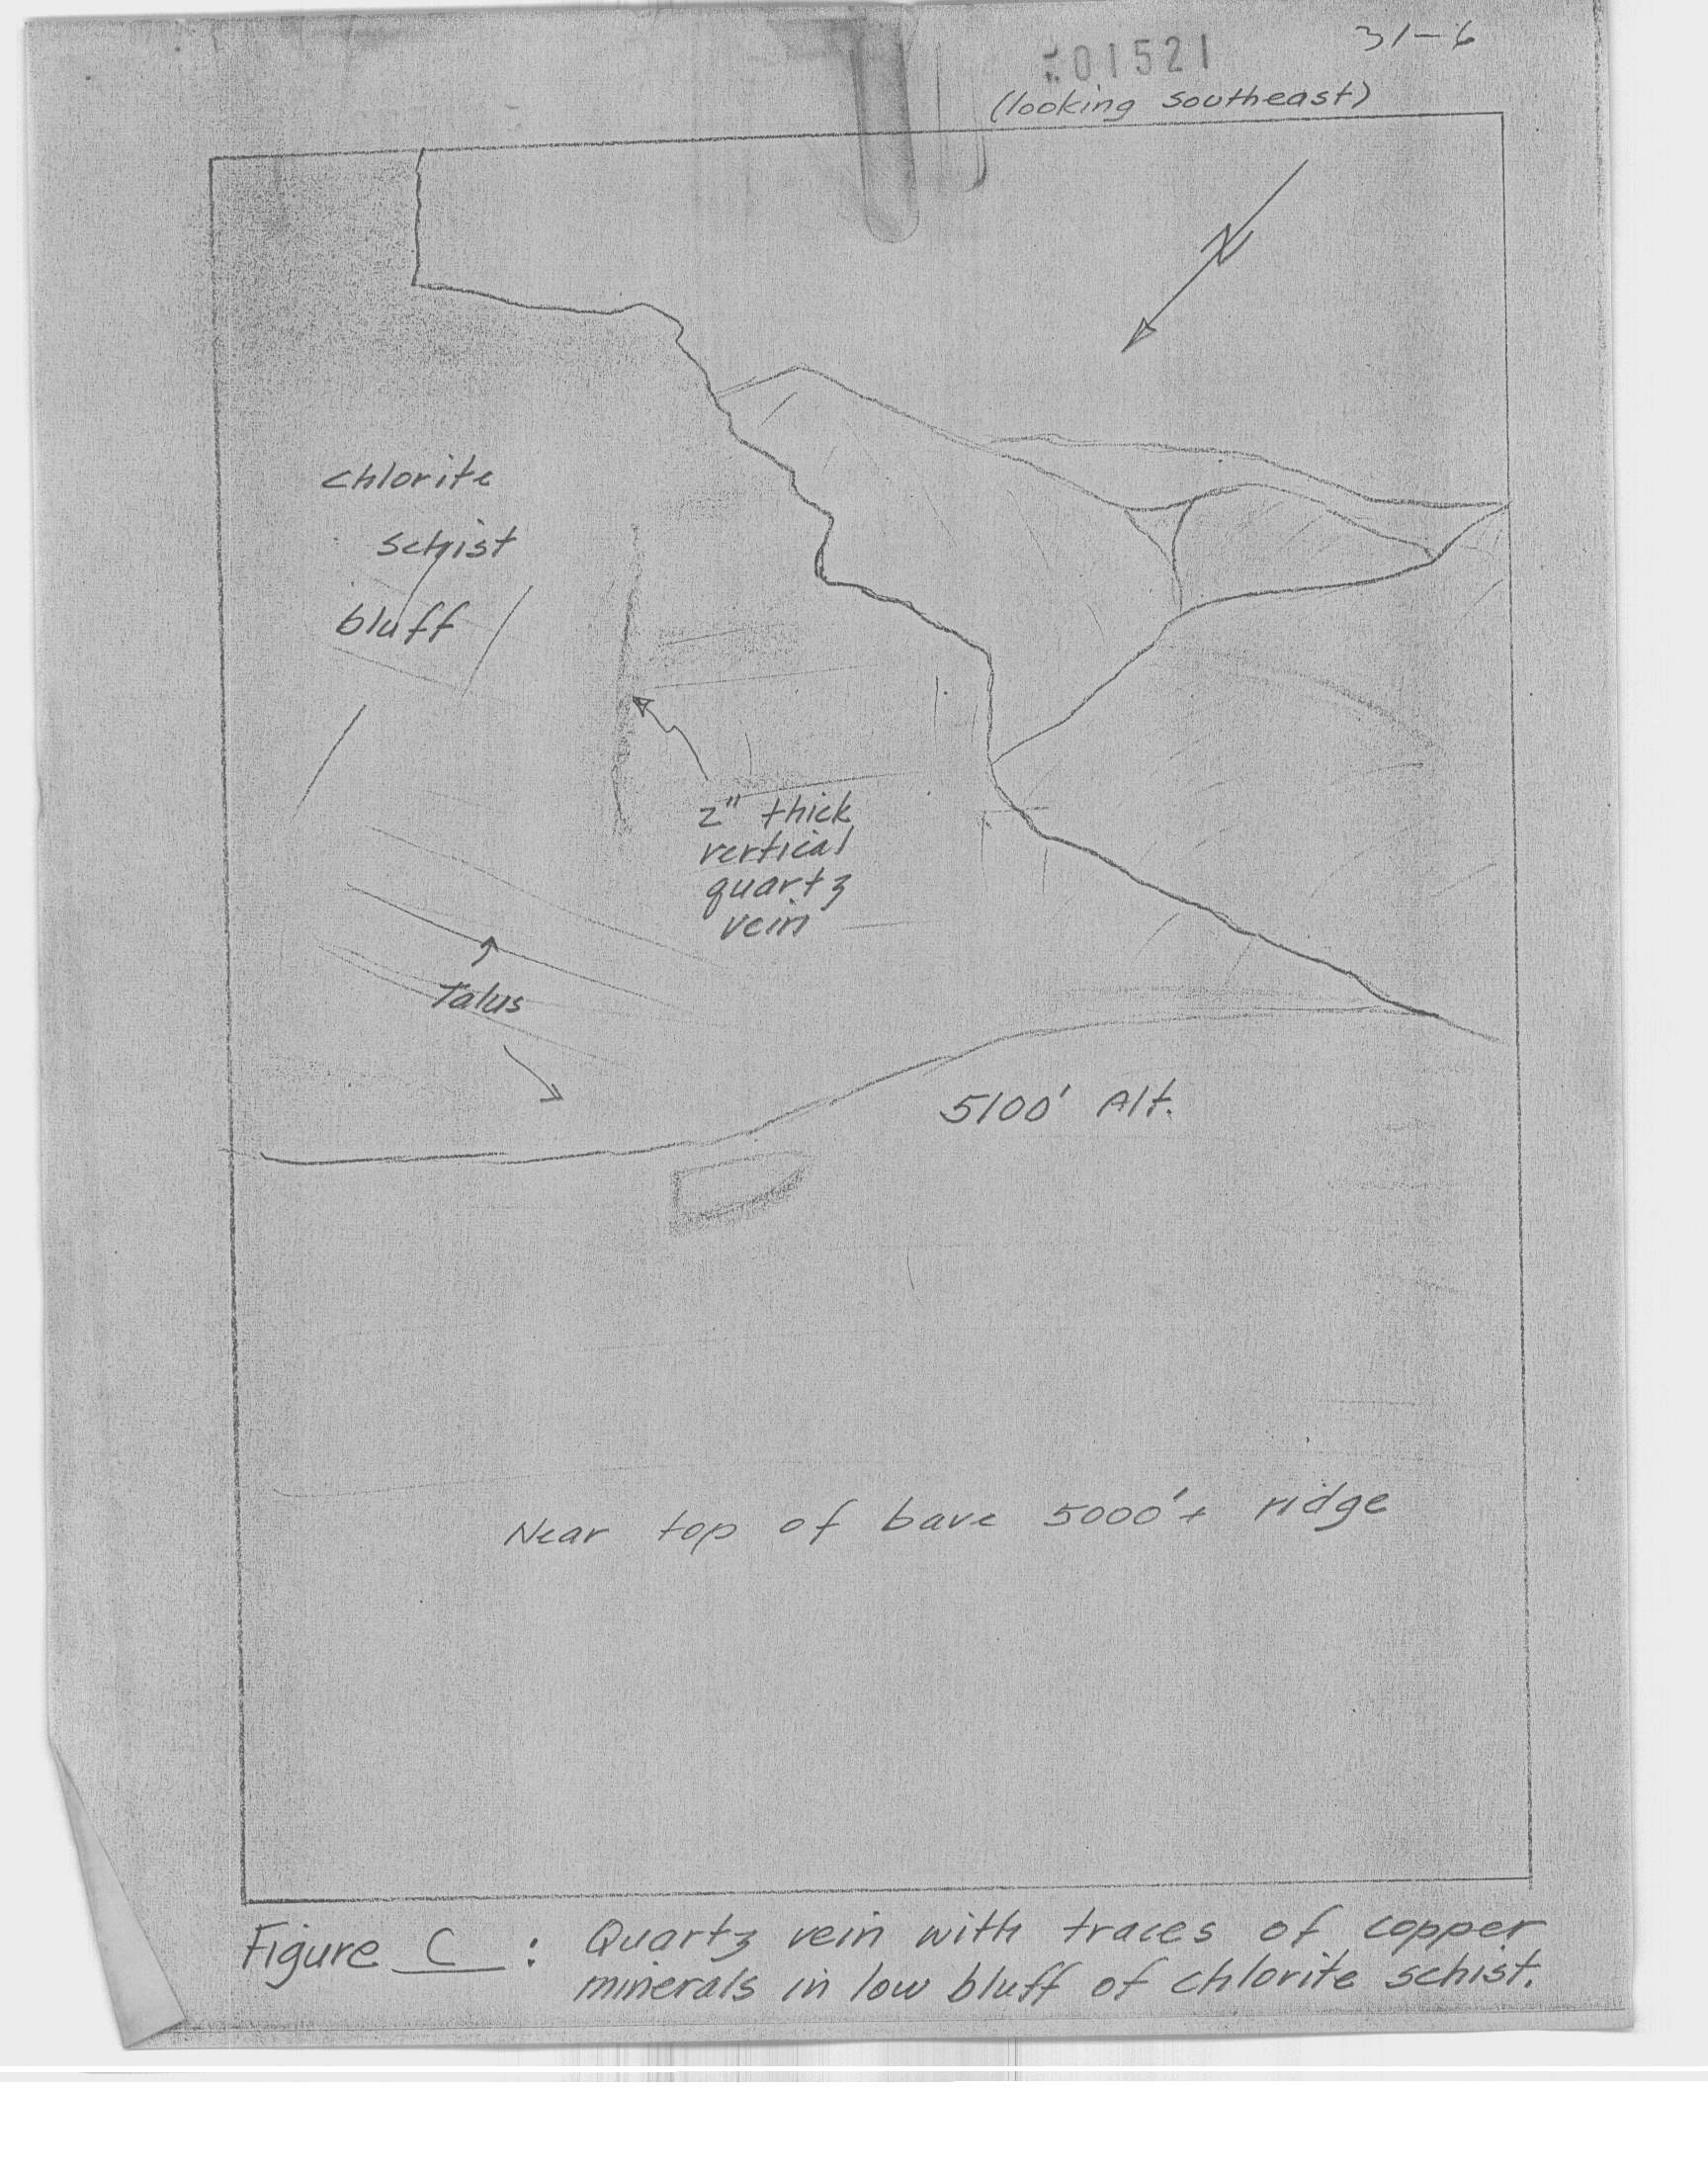 31-6
01521
(looking southeast)
N
chlorite
schist
bluff
2" thick
vertical
quartz
vein
Talus
5100' Alt.
Near top of bare 5000'+ ridge
Figure C : Quartz vein with traces of copper
minerals in low bluff of chlorite schist.